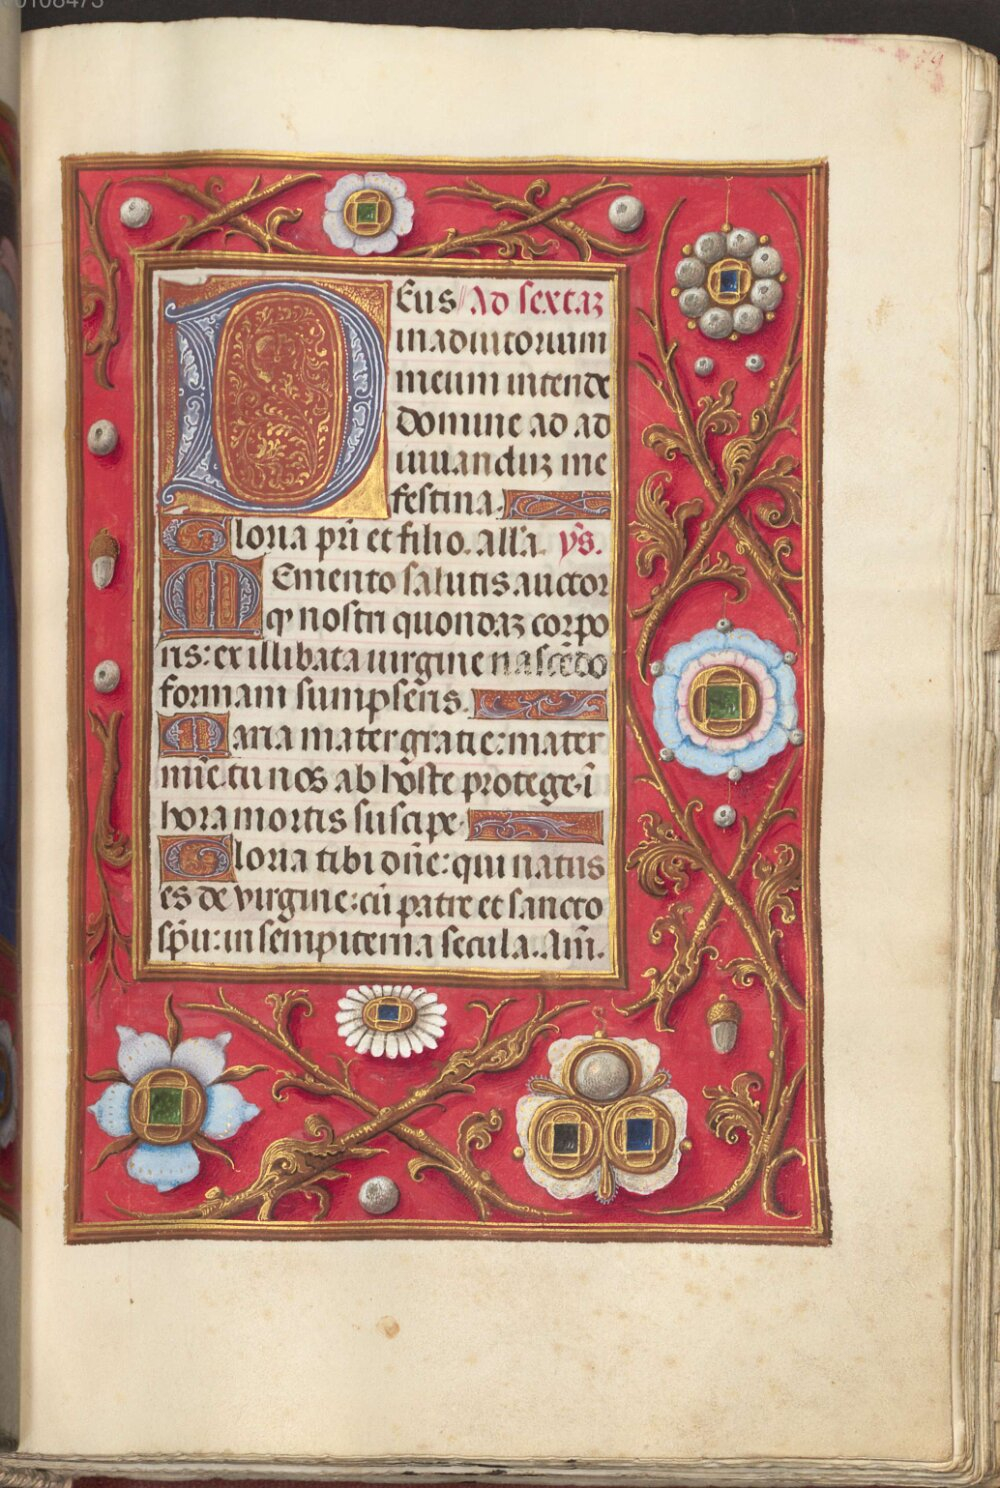 00108473
79
DEus Ad sextaʒ
in adiutorium
meum intende
domine ad ad
iuuanduʒ me
festina.
Gloria pr̄i et filio. all'a. ym̄s.
Memento salutis auctor
qȝ nostri quondaʒ corpo
ris: ex illibata uirgine nascēdo
formam sumpseris.
Maria mater gratie: mater
mīe. tu nos ab hoste protege. ī
hora mortis suscipe.
Gloria tibi dn̄e: qui natus
es de virgine: cū patre et sancto
sp̄u: in sempiterna secula. Am̄.